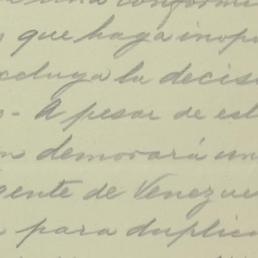 una conformi
que haga inopo
xcluya la decis
- A pesar de es
demorará un
gente de Venezue
para duplic